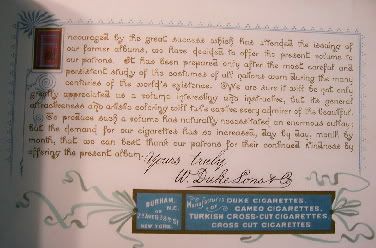 Encouraged by the great success which has attended the issuing of
our former albums, we have decided to offer the present volume to
our patrons. It has been prepared only after the most careful and
persistent study of the costumes of all nations worn during the many
centuries of the world's existence. We are sure it will be not only
greatly appreciated as a volume interesting and instructive, but its general
attractiveness and artistic coloring will take captive every admirer of the beautiful.
To produce such a volume has naturally necessitated an enormous outlay:
but the demand for our cigarettes has so increased, day by day, month by
month, that we can best thank our patrons for their continued kindness by
offering the present album.
Yours truly,
W. Duke Sons & Co
DURHAM,
N.C.
OR
NEW YORK.
Manufacturers of
DUKE CIGARETTES.
CAMEO CIGARETTES.
TURKISH CROSS-CUT CIGARETTES
CROSS CUT CIGARETTES